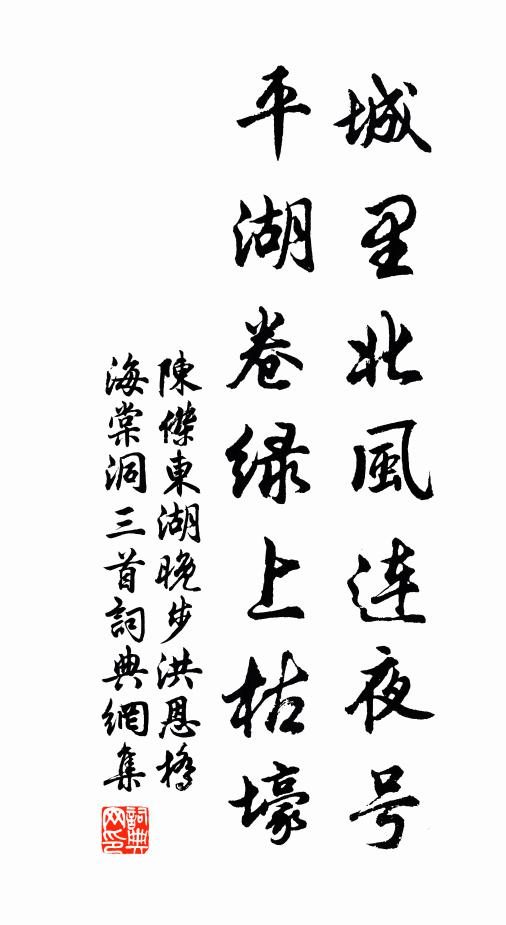 城里北風连夜号
平湖卷绿上枯壕
陳傑東湖晚步洪恩橋
海棠洞三首詞典網集
詞典
网印